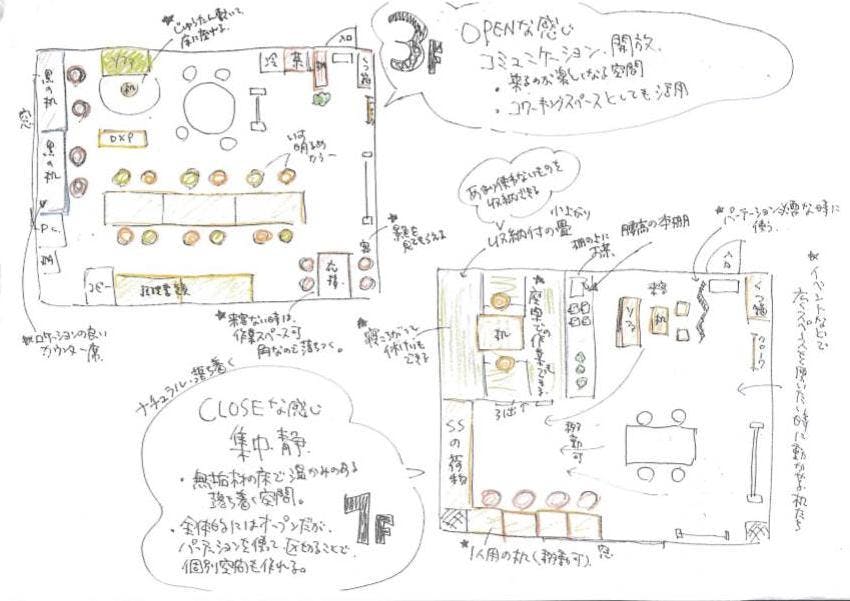 じゅうたん敷いて、
床に座れる。
ソファ
机
冷
茶
入口
くつ箱
3F
OPENな感じ
コミュニケーション、開放、
・来るのが楽しくなる空間
・コワーキングスペースとしても活用
窓
黒の机
黒の机
DXP
いす
明るめ
カラー
PC
コピー
応接
窓
来客ない時は、
作業スペース可
角なので落ちつく。
ロケーションの良い
カウンター席
あまり使わないものを
収納できる
小上がり
収納付の畳
棚の上に
お茶
腰高の本棚
パーテーション必要な時に
使う
入口
くつ箱
来客
ソファ
机
机
座って
の作業も
できる。
寝ころがって
休けいも
できる
引出
移動可
SSの荷物
イベントなどで
広くスペースを用いたい時に動かせる机たち
1人用の机(移動可)
窓
ナチュラル、落ち着く
CLOSEな感じ
集中、静
・無垢材の床で温かみのある
落ち着く空間。
・全体的にはオープンだが、
パーテーションを使って区切ることで、
個別空間も作れる。
1F